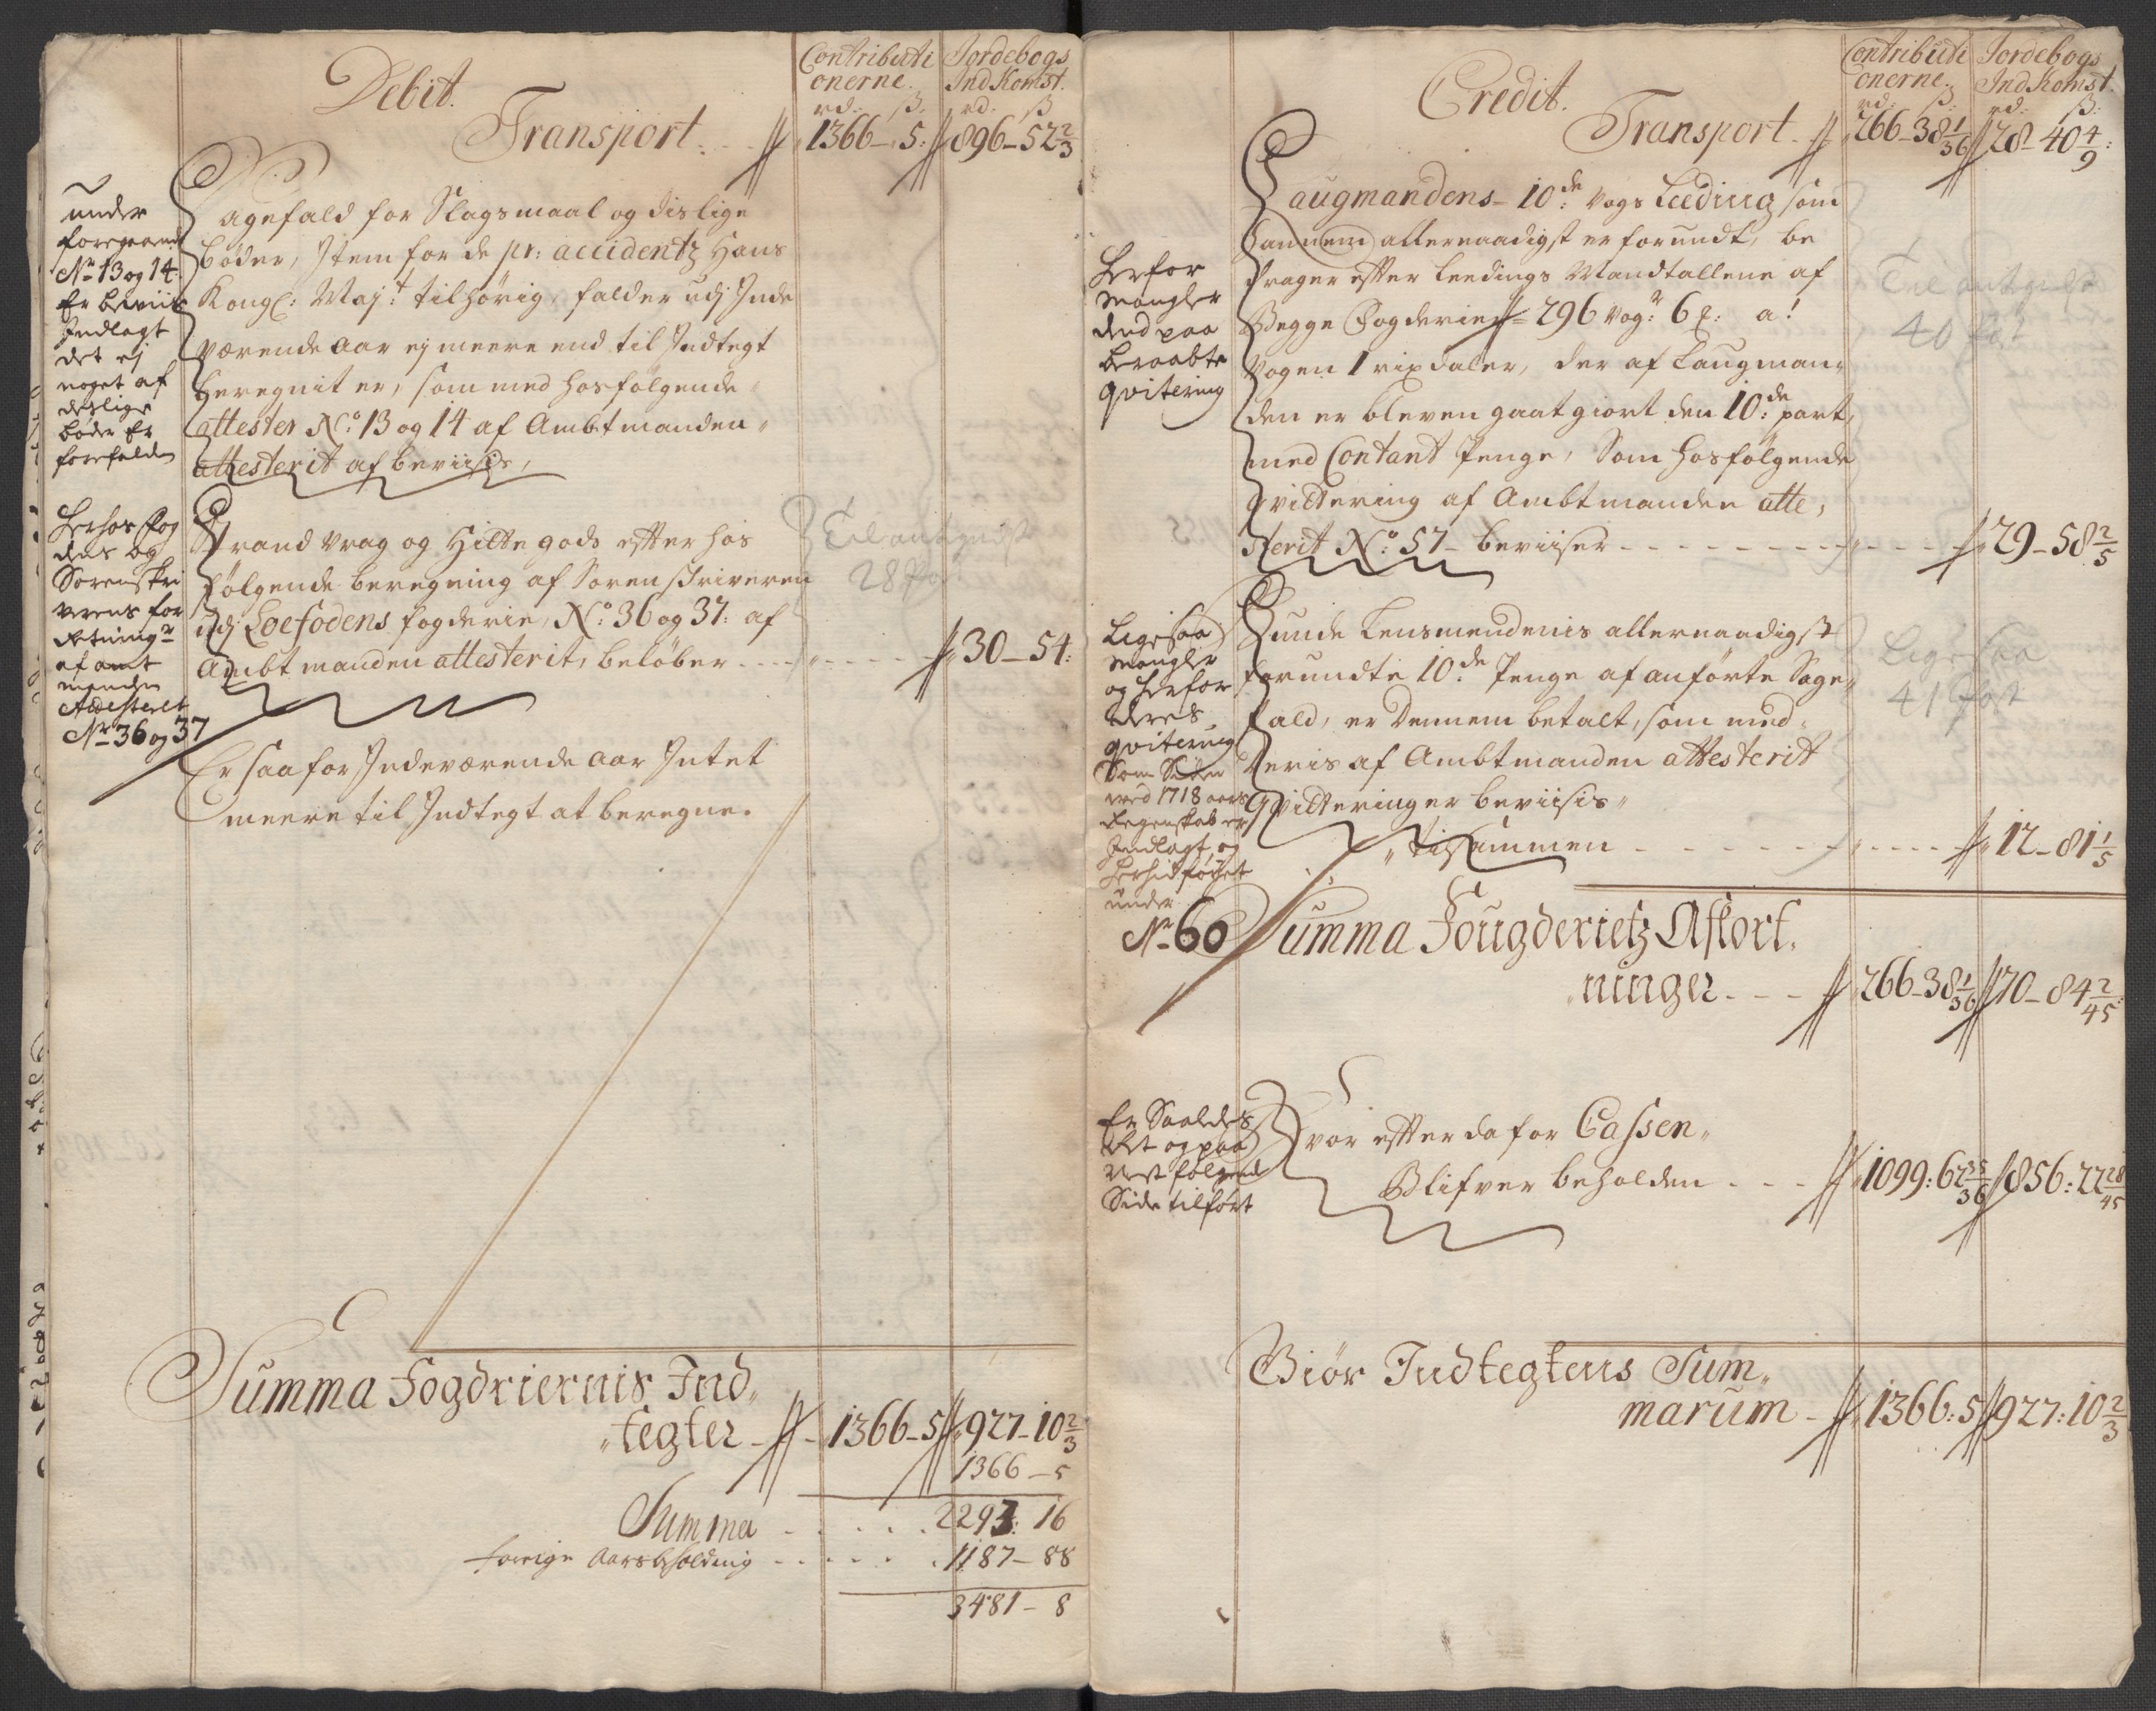 Debit.
Contributi
onerne.
rd: ß.
Jordebogs
IndKomst.
rd. ß
Transport. 1366 - 5: 896 - 52 2/3
under
foregaaend
No 13 og 14.
Er beviis
Indlagt
det ej
noget af
deslige
bøder Er
forefalden
Sagefald for Slagsmaal og dislige
bøder, Item for de pr: accidentz Hans
Kongl: Maj:t tilhørig, falder udj Inde
værende aar ej meere end til Indtegt
beregnit er, som med hosfølgende
attester No: 13 og 14 af Ambtmanden
attesterit af beviisis,
Herhos Fog
dens og
Sorenskri
verens for
Retning
af amt
manden
Attesteret
No 36 og 37
Strand Vrag og Hitte gods efter hos
følgende beregning af Sorenskriveren
udj Loefodens fogderie, No: 36 og 37: af
Ambtmanden attesterit, beløber - - - 30 - 54:
Til antegnelse
28 Post
Er saa for Indeværende aar Intet
meere til Indtegt at beregne.
Summa Fogdriernis Ind
tegter - 1366 - 5 927 - 10 2/3
1366 - 5
Summa . . . . . 2293: 16
forrige Aars beholding - - . . . . 1187 - 88
3481 - 8
Credit.
Contributi
onerne.
rd: ß:
Jordebogs
IndKomst.
rd: ß:
Transport - 266 - 38 1/36 28 - 40 4/9:
Herfor
mangler
ded paa
beraabte
qvitering
Laugmandens - 10de: Vogs Leeding som
hannem allernaadigst er forundt, be
drager efter Leedings Mandtallene af
Begge Fogderier = 296 Vog: 6 : a!
Vogen 1 rixdaler, der af Laugman
den er bleven gaatgiort den 10de: part,
med Contant Penge, Som hosfølgende
qvittering af Ambtmanden atte,
sterit No: 57 - beviiser - - - - - - 29 - 58 2/5
Til antegnelse
40 Post
Ligesaa
mangler
og herfor
deres
qvitering
Som Siden
med 1718 aars
Regenskab er
Indlagt, og
herhid føret
under
No 60
Bunde Lensmendenis allernaadigst
forundte 10de: Penge af anførte Sage
fald, er dennem betalt, som med
deris af Ambtmanden attesterit
Qvitteringer beviisis
tilsammen - - - - - - 12 - 81 1/5
Ligesaa
41 Post
Summa Fougderietz Afkort
ninger - - - 266 - 38 1/36 70 - 84 2/45:
Er Saaledes
Ret og paa
Nest følgende
Side tilført
Hvor efter da for Cassen
Blifver beholden - - - 1099: 62 35/36 856: 22 28/45
Giør Indtegtens Sum
marum - 1366: 5 927: 10 2/3